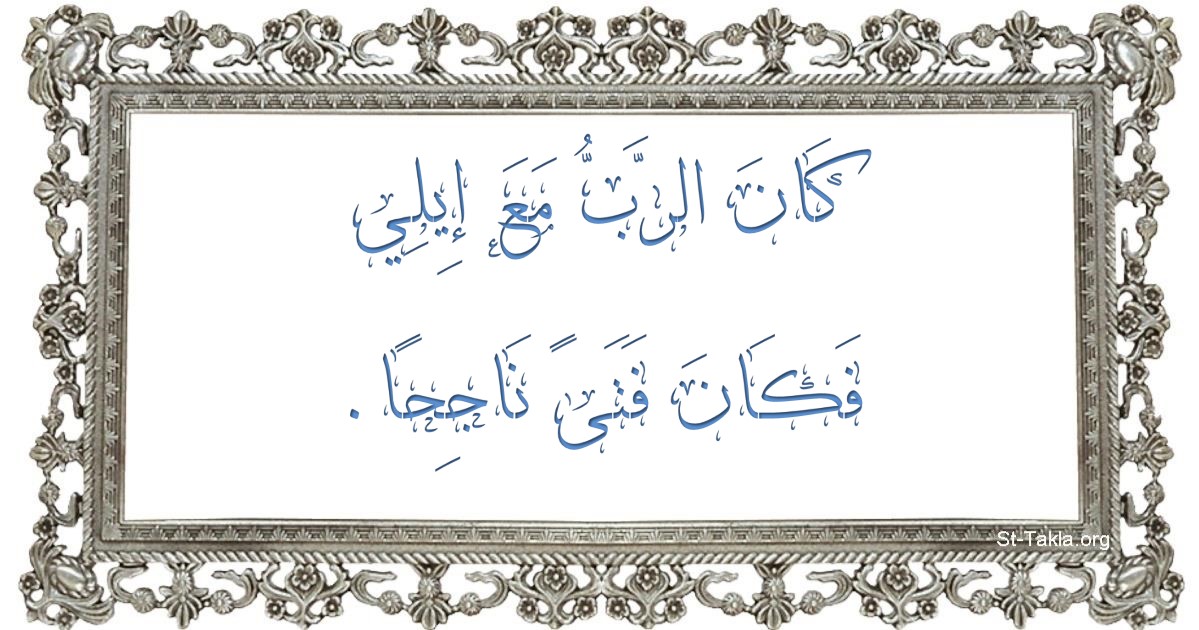 كَانَ الرَّبُّ مَعَ إِيلِي
فَكَانَ فَتَىً نَاجِحًا .
St-Takla.org